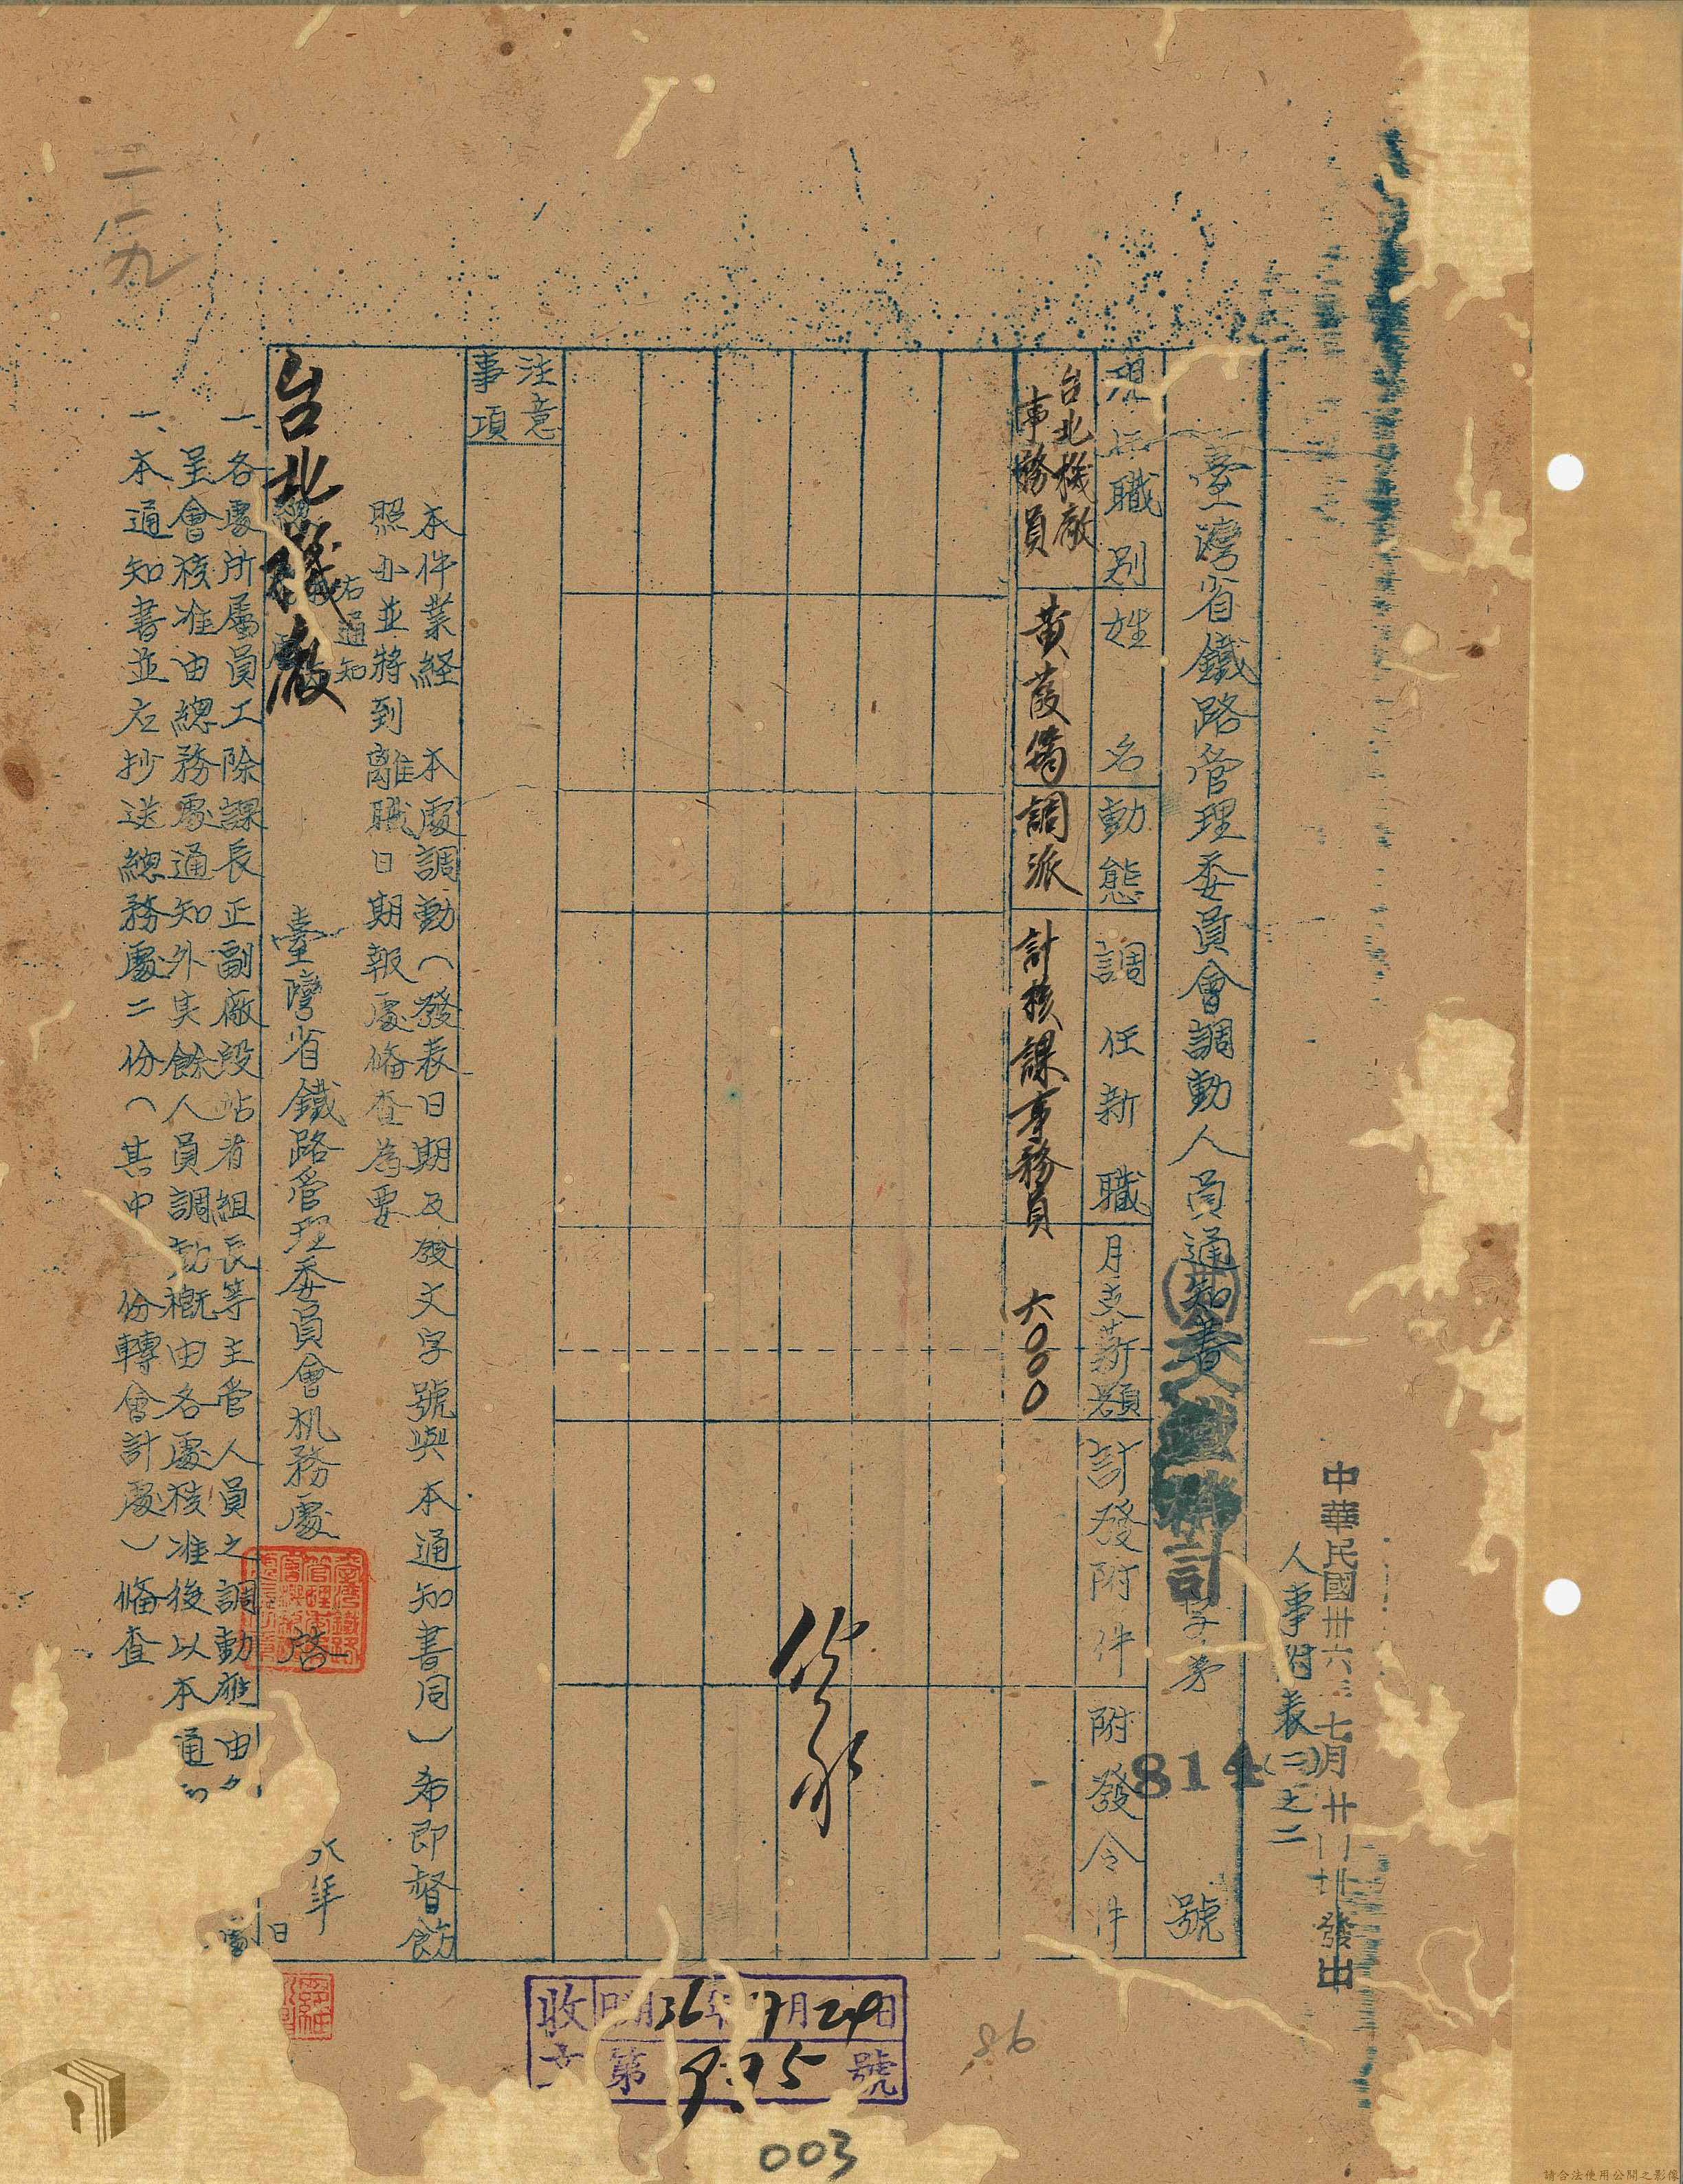 中華民國卅六年七月廿 發出
人事附表(二)之二
臺灣省鐵路管理委員會調動人員通知書
計字第 814 號
現任職別
姓名
動態
調任新職
月支薪額
計發附件
附發令件
台北機廠
事務員
黃
調派
計核課事務員
六000
注意
事項
本件業経 本處調動(發表日期及發文字號與本通知書同)希即督飭
照办並將到離職日期報處俻查為要
右通知
台北機廠
臺灣省鐵路管理委員會机務處 啓
一、各處所屬員工除課長正副廠段站者組長等主管人員之調動應由
呈會核准由總務處通知外其餘人員調動概由各處核准後以本通
一、本通知書並应抄送總務處二份(其中一份轉會計處)俻查
二一九
收文
36年7月29日
第 號
86
003
請合法使用公開之影像